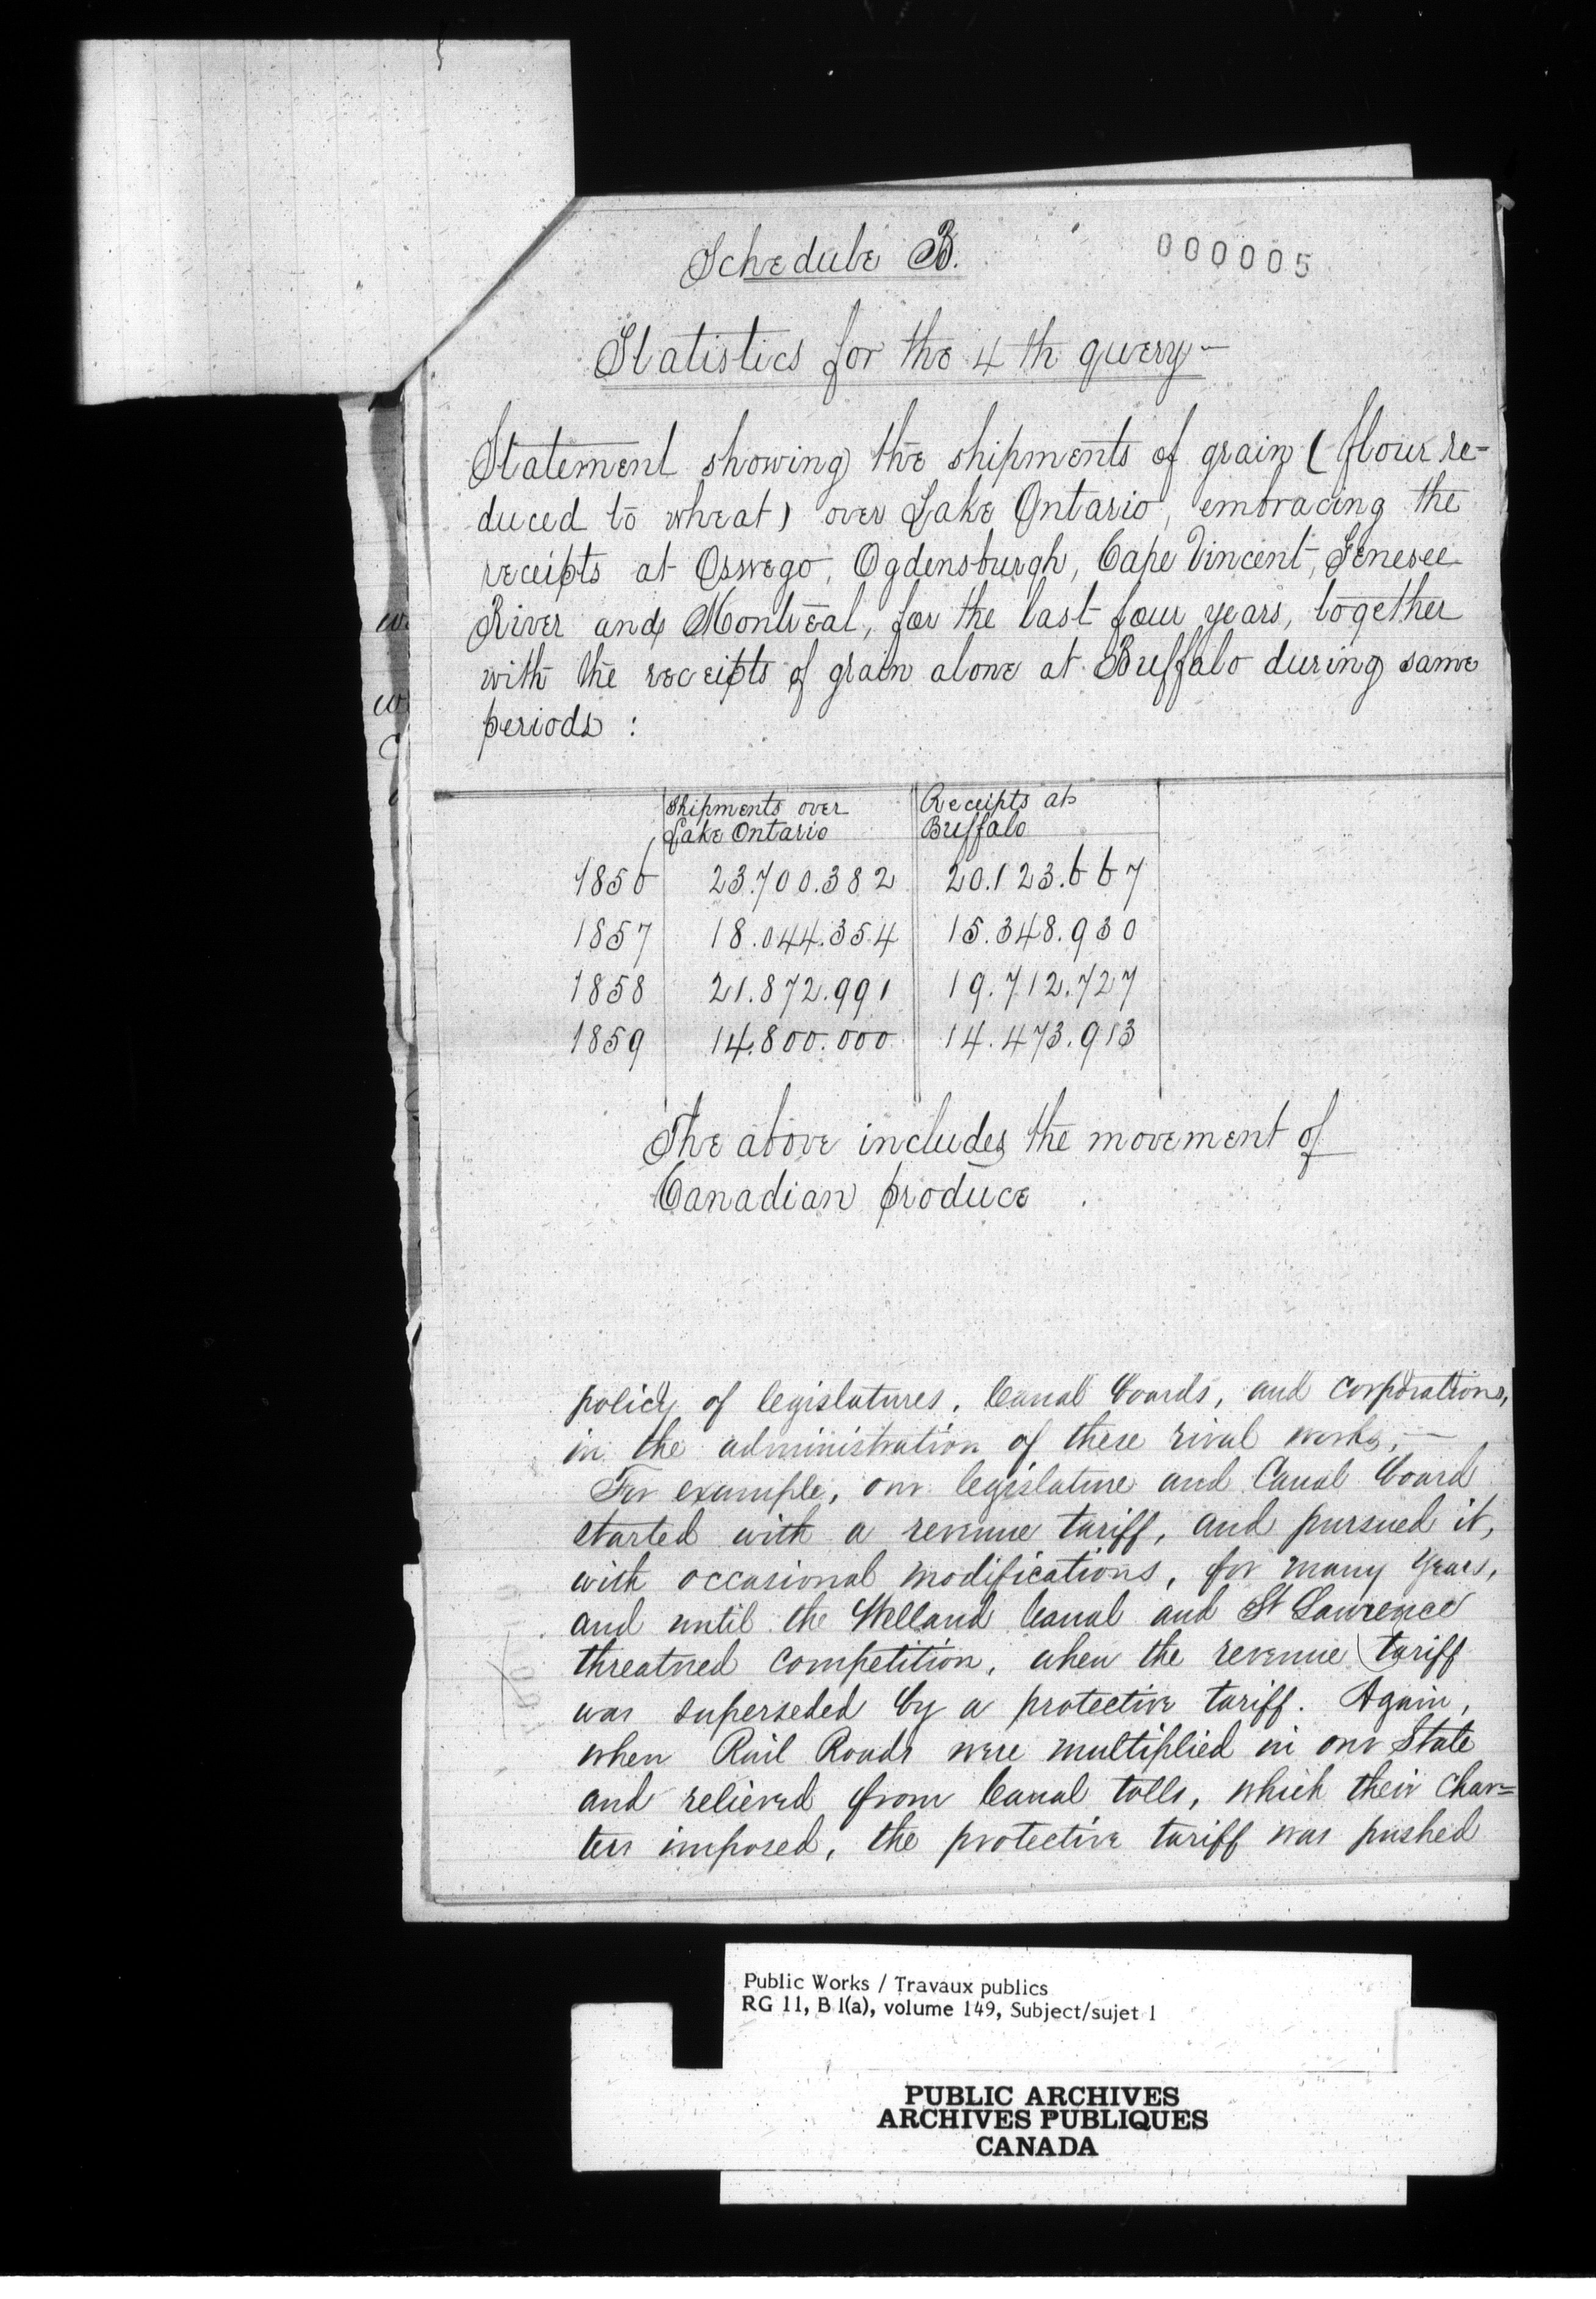 Schedule B.
000005
Statistics for the 4th query—
Statement showing the shipments of grain (flour re-
duced to wheat) over Lake Ontario, embracing the
receipts at Oswego, Ogdensburgh, Cape Vincent, Genesee
River and Montreal, for the last four years, together
with the receipts of grain alone at Buffalo during same
periods :
Shipments over Receipts at
Lake Ontario Buffalo
1856 23.700.382 20.123.667
1857 18.044.354 15.348.930
1858 21.872.991 19.712.727
1859 14.800.000 14.473.913
The above includes the movement of
Canadian produce .
policy of legislatures, Canal boards, and corporations,
in the administration of these rival works,—
For example, our legislature and Canal board
started with a revenue tariff, and pursued it,
with occasional modifications, for many years,
and until the Welland Canal and St Lawrence
threatned competition, when the revenue tariff
was superseded by a protective tariff. Again,
when Rail Roads were multiplied in our State
and relieved from Canal tolls, which their char=
ters imposed, the protective tariff was pushed
Public Works / Travaux publics
RG 11, B 1(a), volume 149, Subject/sujet 1
PUBLIC ARCHIVES
ARCHIVES PUBLIQUES
CANADA